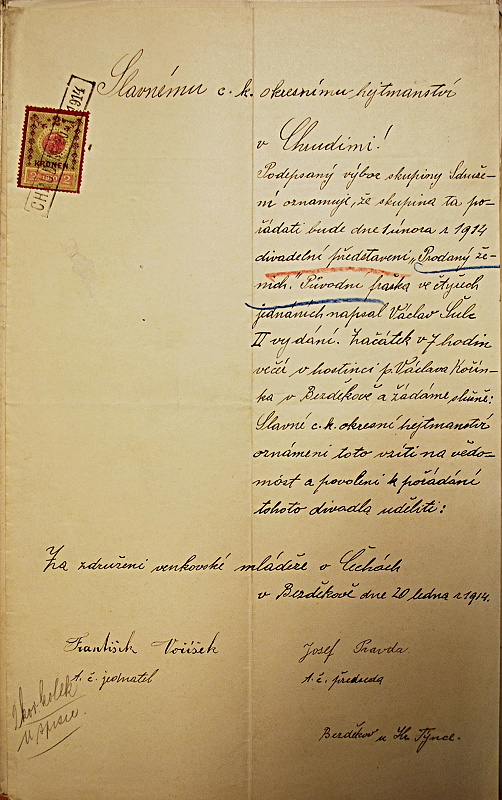 Slavnému c. k. okresnímu hejtmanství
v Chrudimi!
Podepsaný výbor skupiny Sdruže-
ní oznamuje, že skupina ta po-
řádati bude dne 1 února r 1914
divadelní představení „Prodaný že-
nich." Původní fraška ve čtyřech
jednáních napsal Václav Šulc
II vydání. Začátek v 7 hodin
večer v hostinci p. Václava Kořín-
ka v Bezděkově a žádáme slušně:
Slavné c. k. okresní hejtmanství
oznámení toto vzíti na vědo-
most a povolení k pořádání
tohoto divadla uděliti:
Za združení venkovské mládeže v Čechách
v Bezděkově dne 20 ledna r 1914.
František Voříšek
t. č. jednatel
Josef Pravda
t. č. předseda
Bezděkov u Hr. Týnce.
KRONEN
2
1914
kolek
v spise.